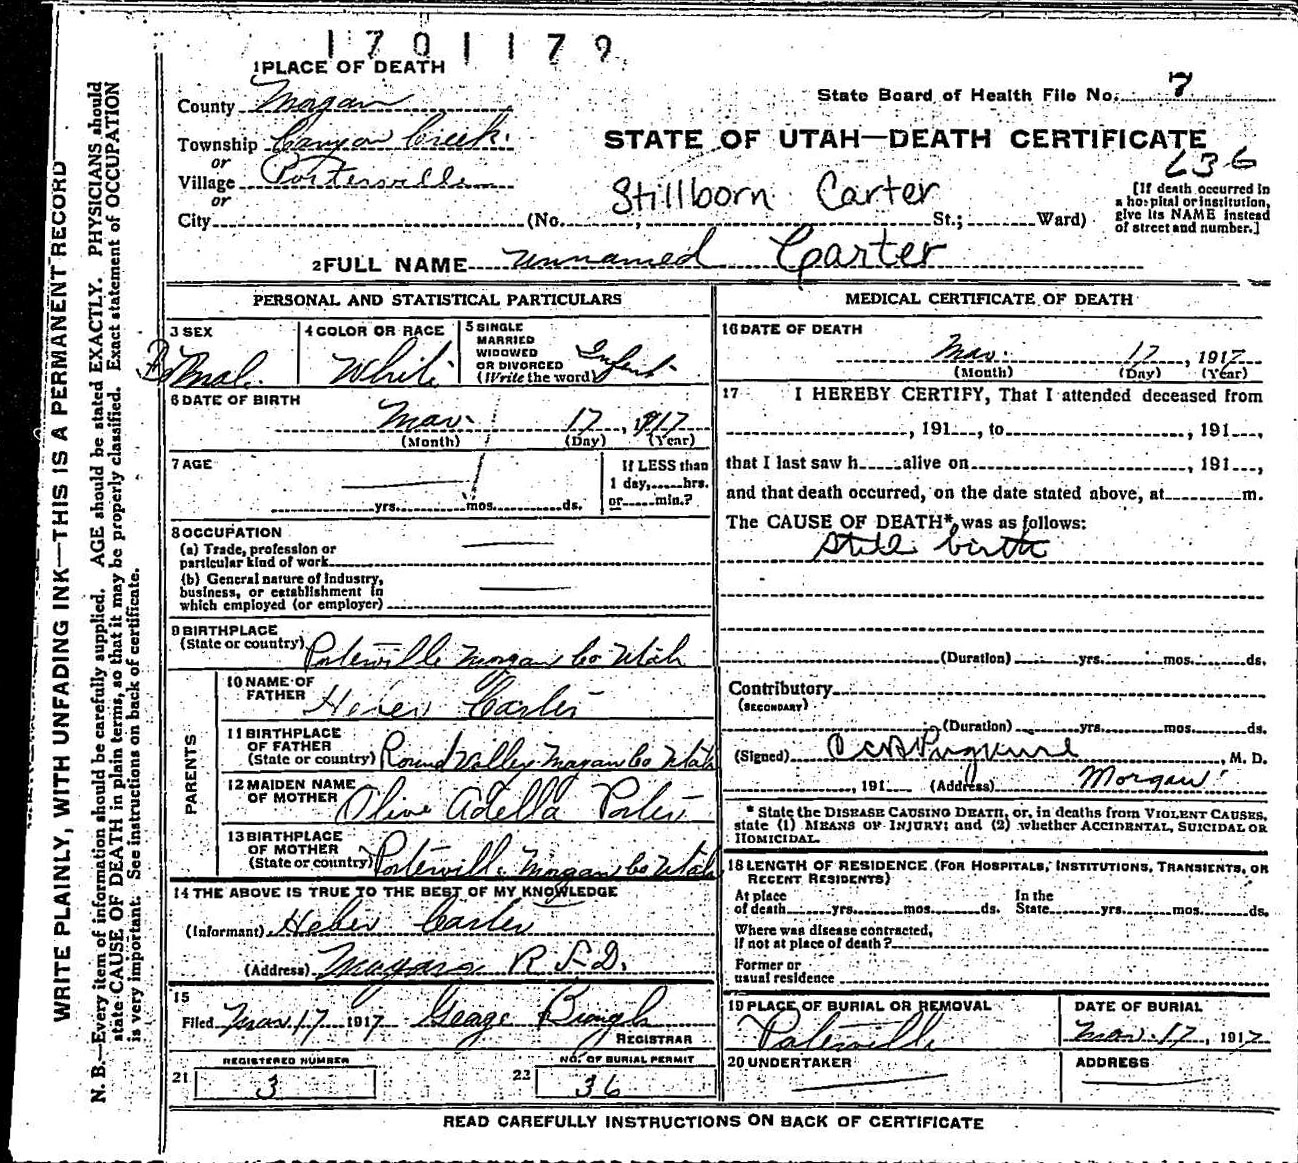 1701179
1 PLACE OF DEATH
County Morgan
State Board of Health File No. 7
Township Canyon Creek.
or
Village Porterville
or
City (No. , St.; Ward)
STATE OF UTAH—DEATH CERTIFICATE
636
Stillborn Carter
[If death occurred in
a hospital or institution,
give its NAME instead
of street and number.]
2 FULL NAME unnamed Carter
PERSONAL AND STATISTICAL PARTICULARS
3 SEX
4 COLOR OR RACE White
5 SINGLE
MARRIED
WIDOWED
OR DIVORCED
(Write the word) Infant
6 DATE OF BIRTH
Mar. 17, 1917
(Month) (Day) (Year)
7 AGE
yrs. mos. ds.
If LESS than
1 day, hrs.
or min.?
8 OCCUPATION
(a) Trade, profession or
particular kind of work
(b) General nature of industry,
business, or establishment in
which employed (or employer)
9 BIRTHPLACE
(State or country) Porterville Morgan Co Utah
PARENTS
10 NAME OF
FATHER Heber Carter
11 BIRTHPLACE
OF FATHER
(State or country) Round Valley Morgan Co Utah
12 MAIDEN NAME
OF MOTHER Olive Adella Porter
13 BIRTHPLACE
OF MOTHER
(State or country) Porterville Morgan Co Utah
14 THE ABOVE IS TRUE TO THE BEST OF MY KNOWLEDGE
(Informant) Heber Carter
(Address) Morgan R.F.D.
15
Filed Mar. 17 1917 George
REGISTRAR
REGISTERED NUMBER
21 3
NO. OF BURIAL PERMIT
22 36
MEDICAL CERTIFICATE OF DEATH
16 DATE OF DEATH
Mar. 17, 1917
(Month) (Day) (Year)
17 I HEREBY CERTIFY, That I attended deceased from
, 191 , to , 191 ,
that I last saw h alive on , 191 ,
and that death occurred, on the date stated above, at m.
The CAUSE OF DEATH* was as follows:
Still birth
(Duration) yrs. mos. ds.
Contributory
(SECONDARY)
(Duration) yrs. mos. ds.
(Signed) , M. D.
, 191 (Address) Morgan
* State the DISEASE CAUSING DEATH, or, in deaths from VIOLENT CAUSES,
state (1) MEANS OF INJURY; and (2) whether ACCIDENTAL, SUICIDAL OR
HOMICIDAL.
18 LENGTH OF RESIDENCE (FOR HOSPITALS, INSTITUTIONS, TRANSIENTS, OR
RECENT RESIDENTS)
At place
of death yrs. mos. ds.
In the
State yrs. mos. ds.
Where was disease contracted,
if not at place of death?
Former or
usual residence
19 PLACE OF BURIAL OR REMOVAL
Porterville
DATE OF BURIAL
Mar. 17, 1917
20 UNDERTAKER
ADDRESS
READ CAREFULLY INSTRUCTIONS ON BACK OF CERTIFICATE
WRITE PLAINLY, WITH UNFADING INK—THIS IS A PERMANENT RECORD
N. B.—Every item of information should be carefully supplied. AGE should be stated EXACTLY. PHYSICIANS should
state CAUSE OF DEATH in plain terms, so that it may be properly classified. Exact statement of OCCUPATION
is very important. See instructions on back of certificate.